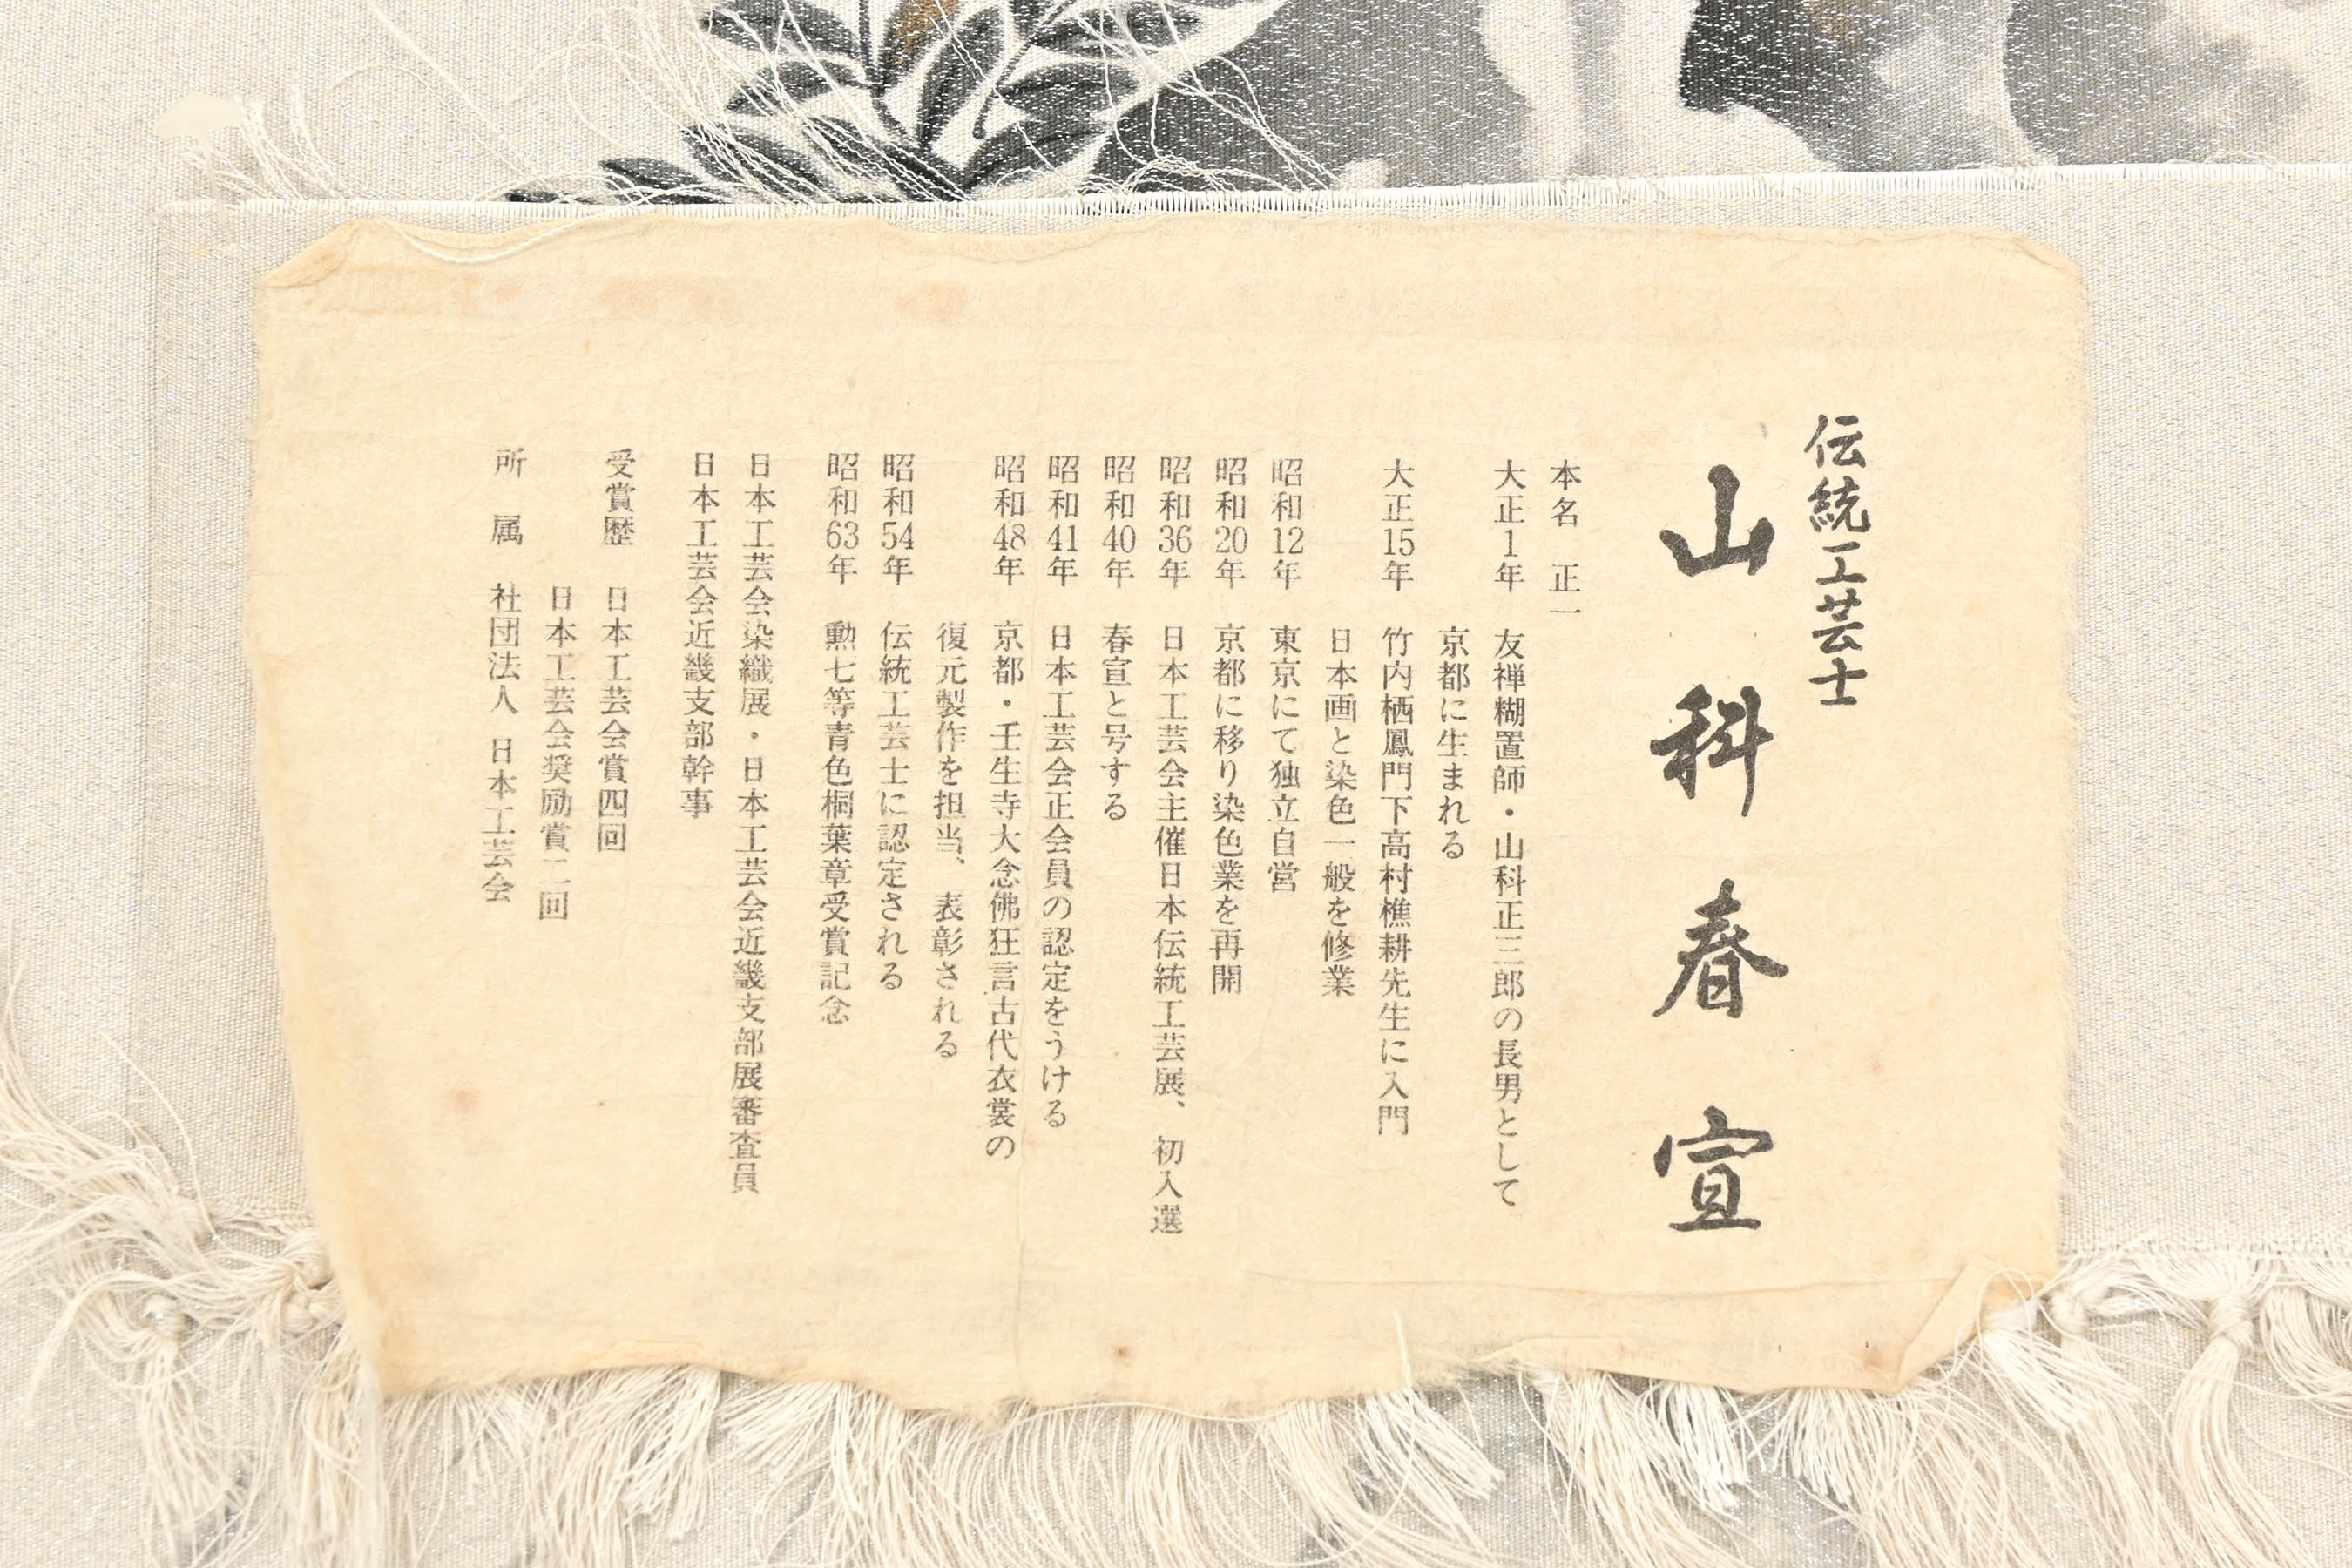 伝統工芸士
山科春宣
本名 正一
大正1年 友禅糊置師・山科正三郎の長男として
京都に生まれる
大正15年 竹内栖鳳門下高村樵耕先生に入門
日本画と染色一般を修業
昭和12年 東京にて独立自営
昭和20年 京都に移り染色業を再開
昭和36年 日本工芸会主催日本伝統工芸展、初入選
昭和40年 春宣と号する
昭和41年 日本工芸会正会員の認定をうける
昭和48年 京都・壬生寺大念佛狂言古代衣裳の
復元製作を担当、表彰される
昭和54年 伝統工芸士に認定される
昭和63年 勲七等青色桐葉章受賞記念
日本工芸会染織展・日本工芸会近畿支部展審査員
日本工芸会近畿支部幹事
受賞歴 日本工芸会賞四回
日本工芸会奨励賞二回
所属 社団法人 日本工芸会